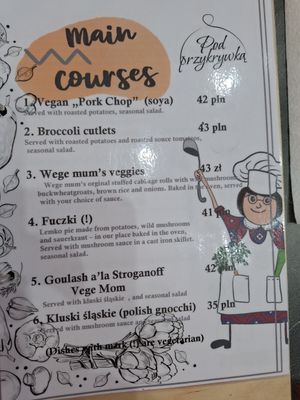 Main
courses
Pod
przykrywką
1. Vegan „Pork Chop” (soya) 42 pln
Served with roasted potatoes, seasonal salad.
2. Broccoli cutlets 43 pln
Served with roasted potatoes and roasted souce tomatoes,
seasonal salad.
3. Wege mum's veggies 43 zł
Wege mum's orginal stuffed cabbage rolls with mushrooms,
buckwheatgroats, brown rice and onions. Baked in the oven, served
with your choice of sauce.
4. Fuczki (!) 41
Lemko pie made from potatoes, wild mushrooms
and sauerkraut – in our place baked in the oven,
Served with mushroom sauce in a cast iron skillet.
seasonal salad.
5. Goulash a'la Stroganoff 42
Vege Mom
Served with kluski śląskie , and seasonal salad
6. Kluski śląskie (polish gnocchi) 35 pln
Served with mushroom sauce and seasonal salad
(Dishes with mark (!) are vegetarian)